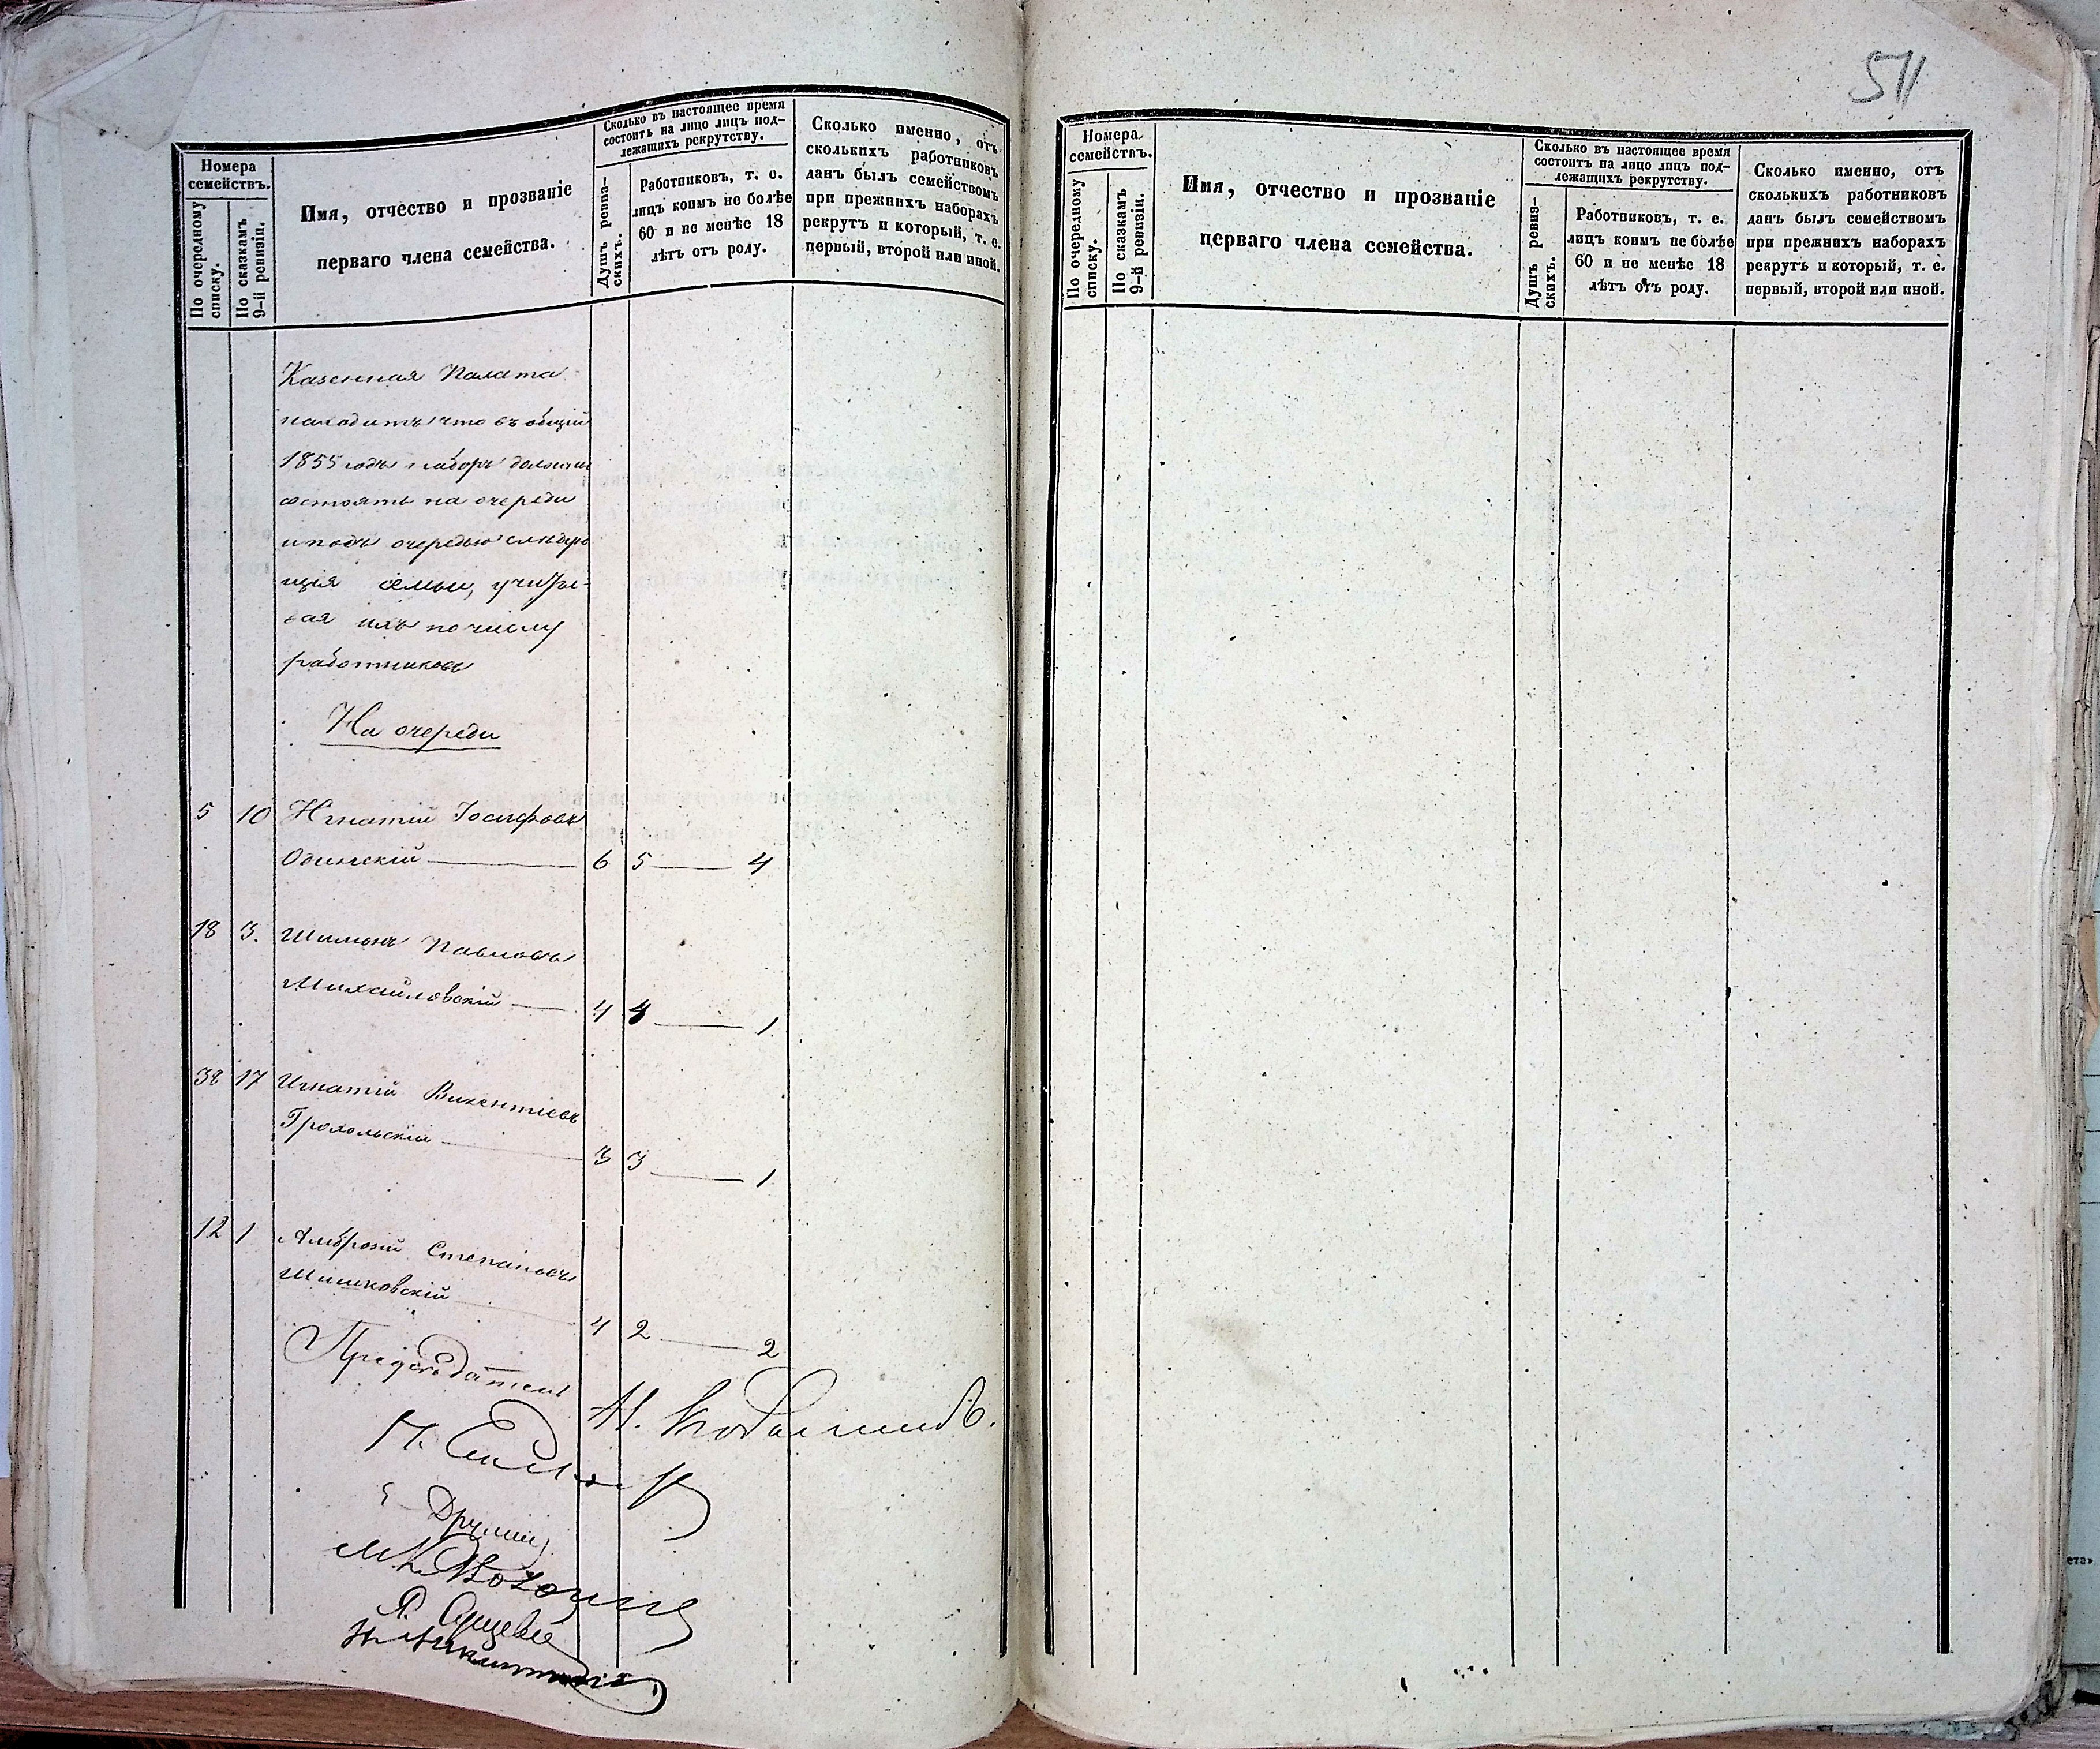 511
Номера
семействъ.
По очередному
списку.
По сказкамъ
9-й ревизіи.
Имя, отчество и прозваніе
перваго члена семейства.
Сколько въ настоящее время
состоитъ на лицо лицъ под-
лежащихъ рекрутству.
Душъ ревиз-
скихъ.
Работниковъ, т. е.
лицъ коимъ не болѣе
60 и не менѣе 18
лѣтъ отъ роду.
Сколько именно, отъ
сколькихъ работниковъ
данъ былъ семействомъ
при прежнихъ наборахъ
рекрутъ и который, т. е.
первый, второй или иной.
Казенная Палата
находитъ что въ общій
1855 года наборъ должны
состоять на очереди
и подъ очередью слѣдую
щія семьи, учиты-
вая ихъ по числу
работниковъ
На очереди
5 10 Игнатій Іосифовъ
Одинскій 6 5 4
18 3. Шимонъ Павловъ
Михайловскій 4 4 1
38 17 Игнатій Викентіевъ
Грохольскій 3 3 1
12 1 Амброзій Степановъ
Шишковскій 4 2 2
Предсѣдатель
Номера
семействъ.
По очередному
списку.
По сказкамъ
9-й ревизіи.
Имя, отчество и прозваніе
перваго члена семейства.
Сколько въ настоящее время
состоитъ на лицо лицъ под-
лежащихъ рекрутству.
Душъ ревиз-
скихъ.
Работниковъ, т. е.
лицъ коимъ не болѣе
60 и не менѣе 18
лѣтъ отъ роду.
Сколько именно, отъ
сколькихъ работниковъ
данъ былъ семействомъ
при прежнихъ наборахъ
рекрутъ и который, т. е.
первый, второй или иной.